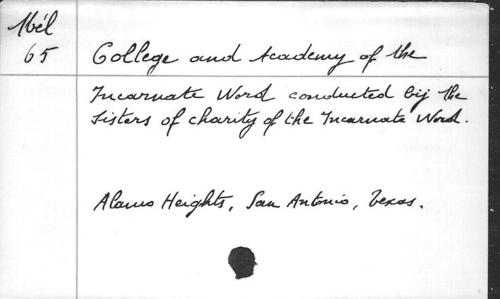 Mél
65
College and Academy of the
Incarnate Word conducted by the
Sisters of charity of the Incarnate Word.
Alamo Heights, San Antonio, Texas.